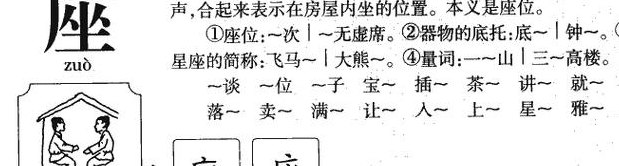 座
zuò
声,合起来表示在房屋内坐的位置。本义是座位。
①座位:～次|～无虚席。②器物的底托:底～|钟～。
星座的简称:飞马～|大熊～。④量词:一～山|三～高楼。
～谈 ～位 ～子 宝～ 插～ 茶～ 讲～ 就～
落～ 卖～ 满～ 让～ 入～ 上～ 星～ 雅～